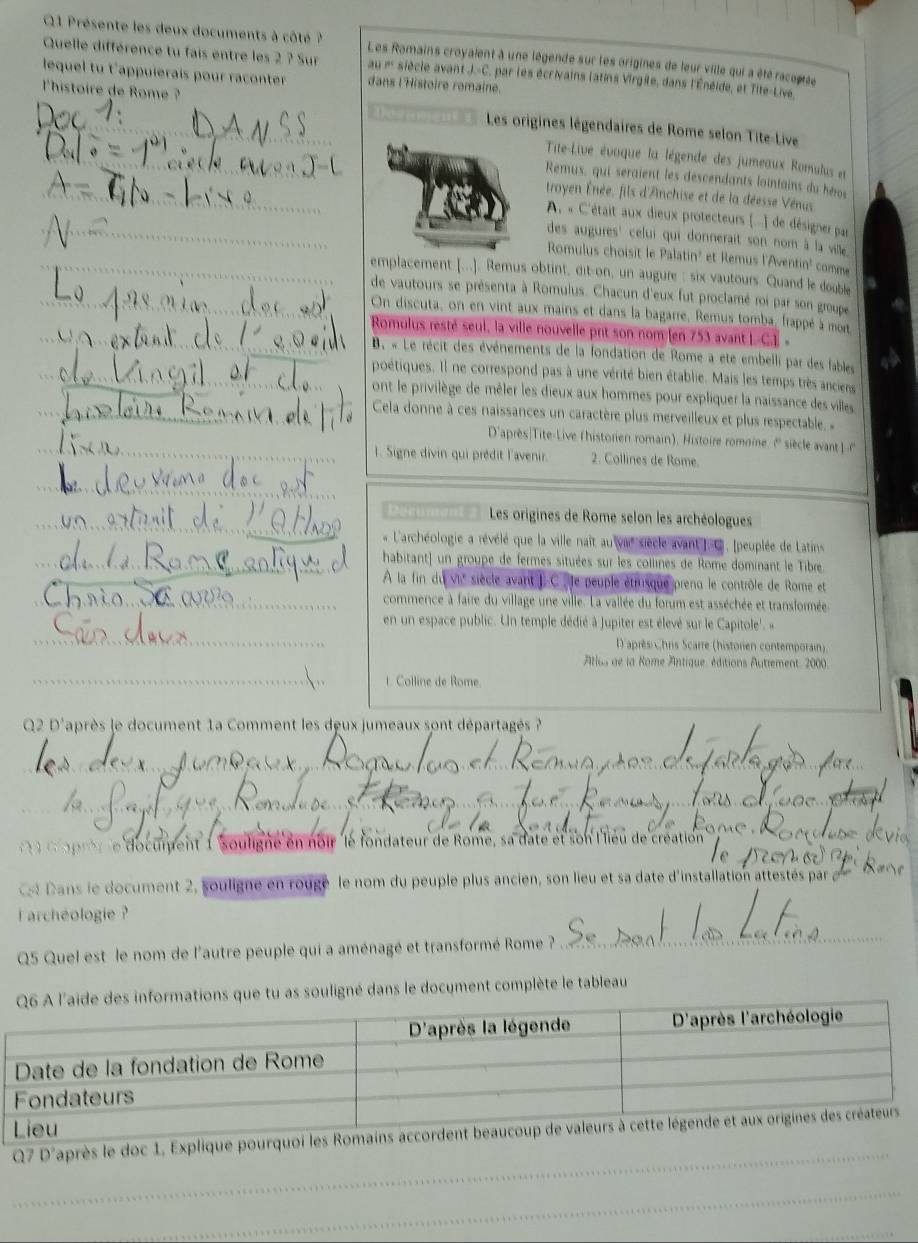 Q1 Présente les deux documents à côté ?
Quelle différence tu fais entre les 2 ? Sur
lequel tu t'appuierais pour raconter
l'histoire de Rome ?
Doc 1: DANSS
Date = 1er siècle aven J-C
A = Tito-Live
N =
Le premier doc est
un extrait de l'
de Virgil et de
histoire Romaine de Tite
live
le deuxième doc est
un extrait de l'Atlas
de la Rome antique d
Chris Scarre
Les Romains croyaient à une légende sur les origines de leur ville qui a été racontée
au Iᵉʳ siècle avant J.-C. par les écrivains latins Virgile, dans l'Énéide, et Tite-Live,
dans l'Histoire romaine.
Document 1 Les origines légendaires de Rome selon Tite-Live
Tite-Live évoque la légende des jumeaux Romulus et
Remus, qui seraient les descendants lointains du héros
troyen Énée, fils d'Anchise et de la déesse Vénus
A. « C'était aux dieux protecteurs [...] de désigner par
des augures¹ celui qui donnerait son nom à la ville.
Romulus choisit le Palatin² et Remus l'Aventin² comme
emplacement [...]. Remus obtint, dit-on, un augure : six vautours. Quand le double
de vautours se présenta à Romulus. Chacun d'eux fut proclamé roi par son groupe
On discuta, on en vint aux mains et dans la bagarre, Remus tomba, frappé à mort
Romulus resté seul, la ville nouvelle prit son nom [en 753 avant J.-C.]. »
B. « Le récit des événements de la fondation de Rome a été embelli par des fables
poétiques. Il ne correspond pas à une vérité bien établie. Mais les temps très anciens
ont le privilège de mêler les dieux aux hommes pour expliquer la naissance des villes.
Cela donne à ces naissances un caractère plus merveilleux et plus respectable. »
D'après Tite-Live (historien romain), Histoire romaine, Iᵉʳ siècle avant J.-C
1. Signe divin qui prédit l'avenir. 2. Collines de Rome.
Document 2 Les origines de Rome selon les archéologues
« L'archéologie a révélé que la ville naît au VIIIᵉ siècle avant J.-C., [peuplée de Latins
habitant] un groupe de fermes situées sur les collines de Rome dominant le Tibre.
À la fin du VIIᵉ siècle avant J.-C., le peuple étrusque prend le contrôle de Rome et
commence à faire du village une ville. La vallée du forum est asséchée et transformée
en un espace public. Un temple dédié à Jupiter est élevé sur le Capitole¹. »
D'après Chris Scarre (historien contemporain),
Atlas de la Rome Antique, éditions Autrement, 2000.
1. Colline de Rome.
Q2 D'après le document 1a Comment les deux jumeaux sont départagés ?
les deux jumeaux, Romulus et Rémus, son départagés par
le fait que Romulus et Remus a tué Remus, lors d'une
de la fondation de Rome. Romulus devien
Q3 D'après le document 1 souligne en noir le fondateur de Rome, sa date et son lieu de création
le premier roi de Rome
Q4 Dans le document 2, souligne en rouge le nom du peuple plus ancien, son lieu et sa date d'installation attestés par
l'archéologie ?
Q5 Quel est le nom de l'autre peuple qui a aménagé et transformé Rome ? Se sont les Latins
Q6 A l'aide des informations que tu as souligné dans le document complète le tableau
D'après la légende D'après l'archéologie
Date de la fondation de Rome
Fondateurs
Lieu
Q7 D'après le doc 1, Explique pourquoi les Romains accordent beaucoup de valeurs à cette légende et aux origines des créateurs